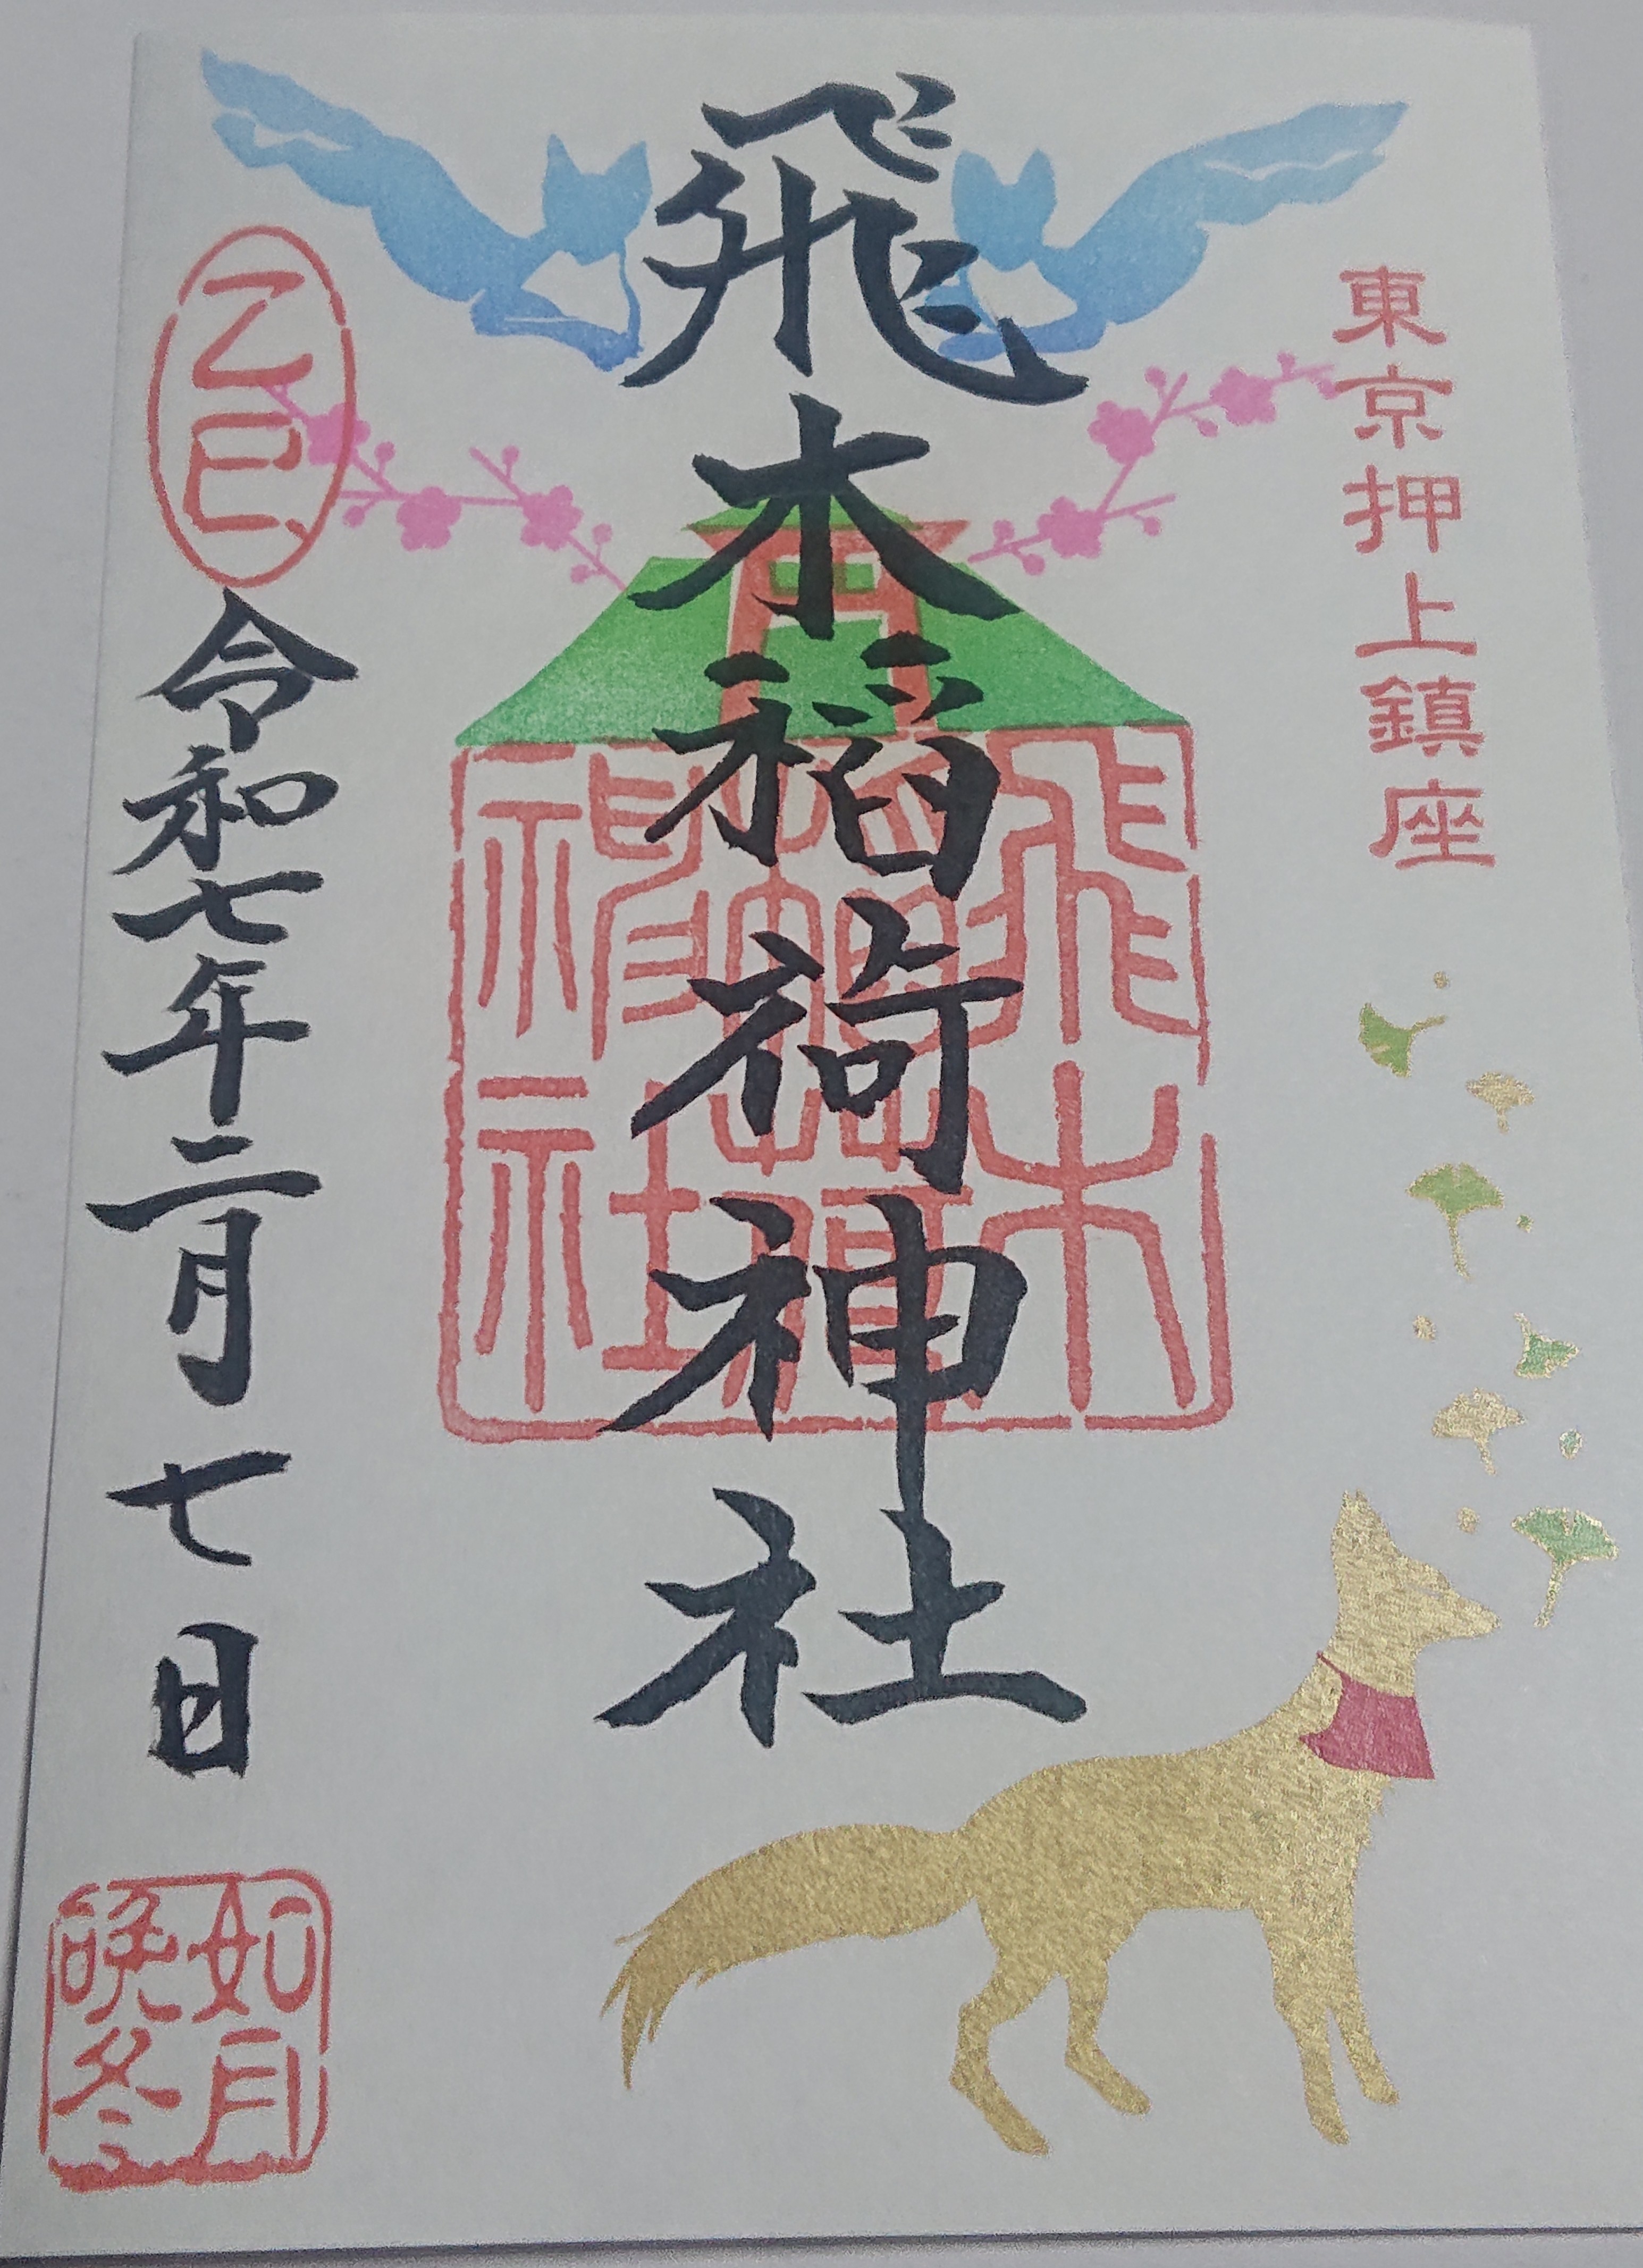 東京押上鎮座
飛木稲荷神社
飛木
稲荷
神社
乙巳
令和七年二月七日
如月
晩冬